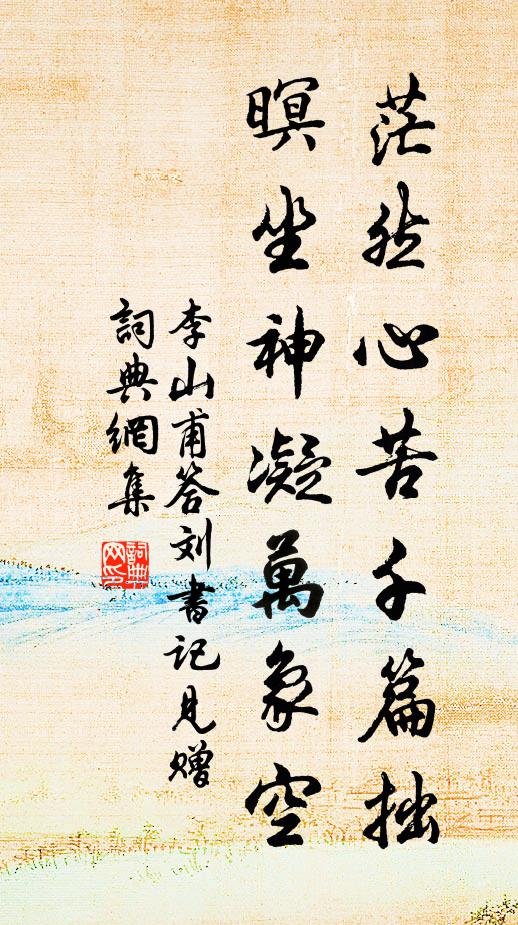 茫然心苦千篇拙
暝坐神凝萬象空
李山甫答刘書记見赠
詞典網集
詞典
网印